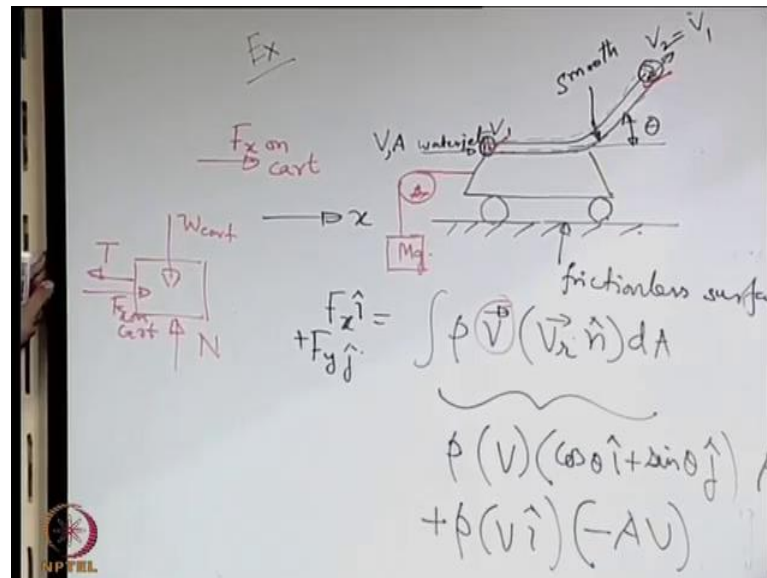 Ex
V₂ = V₁
smooth
θ
V, A waterjet
V₁
Fx on
cart
x
Mg
frictionless surfa
W cart
T
Fx on
cart
N
Fx î
+ Fy ĵ
= ∫ ρ V⃗ (V⃗r n̂) dA
ρ (V) (cos θ î + sin θ ĵ)
+ ρ (V î) (-AV)
NPTEL